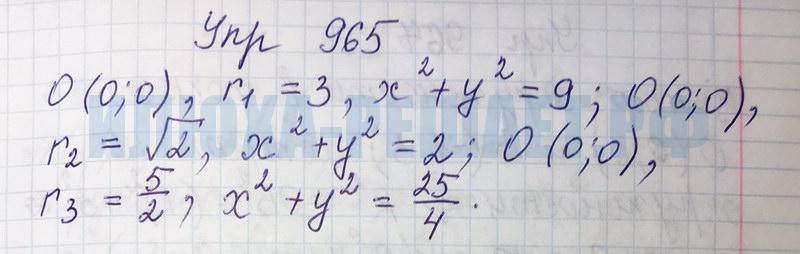 Упр 965
O(0;0), r₁ = 3, x² + y² = 9; O(0;0),
r₂ = √2, x² + y² = 2; O(0;0),
r₃ = 5/2, x² + y² = 25/4.
КЛЮХА-РЕШАЕТ.РФ